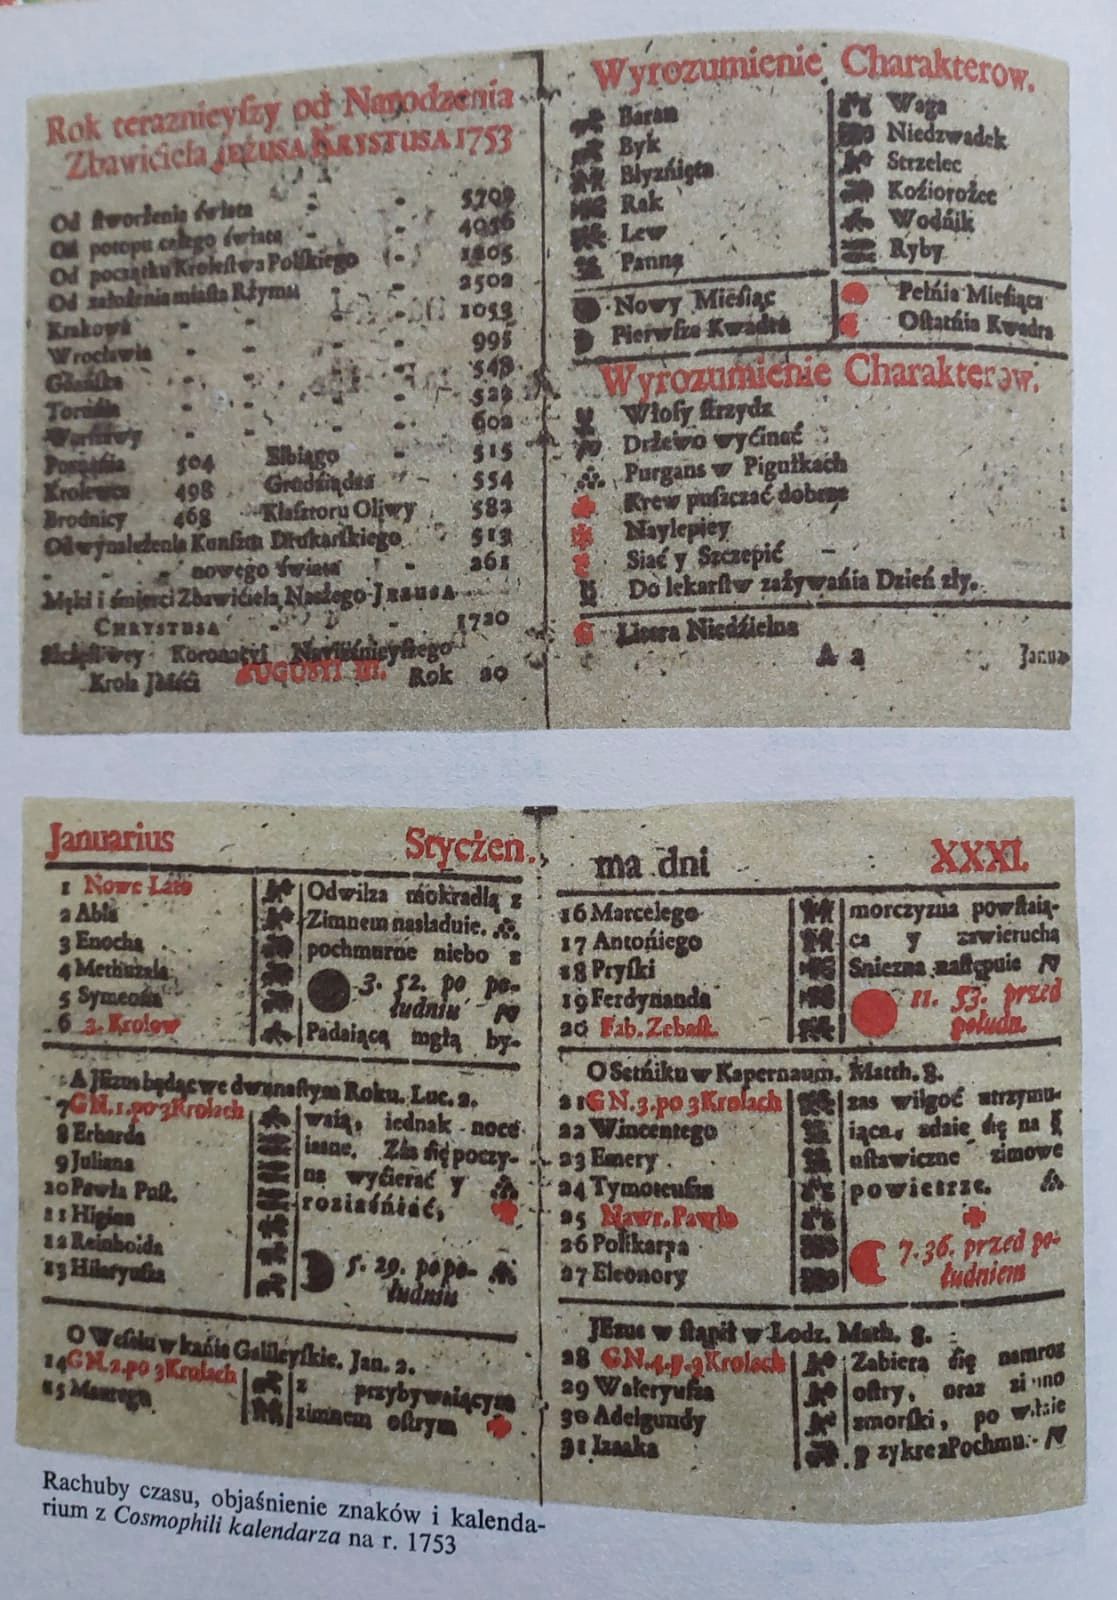 Rok teraznieyſzy od Narodzenia
Zbawićiela JEZUSA KRYSTUSA 1753
Od ſtworżenia świata - - 5702
Od potopu całego świata - - 4096
Od początku Kroleſtwa Polſkiego (-) 1205
Od założenia miaſta Rżymu - - 2502
Krakowa - - 1053
Wrocławia - - 995
Gdańſka - - 548
Torunia - - 522
Warſzawy - - 602
Poznánia 504 Elbiągo - 515
Krolewca 498 Grudziądza 554
Brodnicy 468 Klaſztoru Oliwy 582
Od wynależenia Kunſztu Drukarſkiego 513
- - nowego świata - 261
Męki i śmierci Zbawićiela Naszego JEZUSA
CHRYSTUSA - 1720
Szczęśliwey Koronacyi Nayiáśnieyſzego
Krola JMści AUGUSTI III. Rok 20
Wyrozumienie Charakterow.
Baran
Byk
Blyźńięta
Rak
Lew
Panna
Waga
Niedzwadek
Strzelec
Koźiorożec
Wodńik
Ryby
Nowy Mieſiąc
Pierwſza Kwadra
Pełńia Mieſiąca
Oſtatńia Kwadra
Wyrozumienie Charakterow.
Włoſy ſtrzydz
Drżewo wyćinać
Purgans w Pigułkach
Krew puſzczać dobrze
Naylepiey
Siać y Szczepić
Do lekarſtw zażywańia Dzień zły.
G Litera Niedźielna
A 2 Janua-
Januarius Styczen.
1 Nowe Lato
2 Abla
3 Enocha
4 Methuzala
5 Symeona
6 3. Krolow
Odwilza mokradlą z
Zimnem nasladuie.
pochmurne niebo z
3. 52. po po-
łudniu
Padaiącą mgłą by-
A JEzus będąc we dwunaſtym Roku. Luc. 2.
7 G N. 1. po 3 Krolach
8 Erharda
9 Juliana
10 Pawła Puſt.
11 Higina
12 Reinholda
13 Hilaryuſza
waią, iednak noce
iasne. Záś ſię poczy-
na wyćierać y
roziaśńiáć,
5. 29. po po-
łudniu
O Weſelu w kańie Galileyſkie. Jan. 2.
14 G N. 2. po 3 Krolach
15 Maurego
z przybywaiącym
zimnem oſtrym
ma dni XXXI.
16 Marcelego
17 Antońiego
18 Pryſki
19 Ferdynanda
20 Fab. Zebaſt.
morczyzna powſtaią-
ca y zawierucha
Sniezna naſtępuie
11. 53. przed
połudn.
O Setńiku w Kapernaum. Matth. 8.
21 G N. 3. po 3 Krolach
22 Wincentego
23 Emery
24 Tymoteuſza
25 Nawr. Pawła
26 Polikarpa
27 Eleonory
zas wilgoć utrzymu-
iąca, zdaie ſię na
uſtawiczne zimowe
powietrze.
7. 36. przed po-
łudniem
JEzus w ſtąpił w Łodz. Math. 8.
28 G. N. 4. p. 3 Krolach
29 Waleryuſza
30 Adelgundy
31 Izaaka
Zabiera ſię na mroz
oſtry, oraz zimno
zmorſki, po
p zykre z Pochmu.
Rachuby czasu, objaśnienie znaków i kalenda-
rium z Cosmophili kalendarza na r. 1753